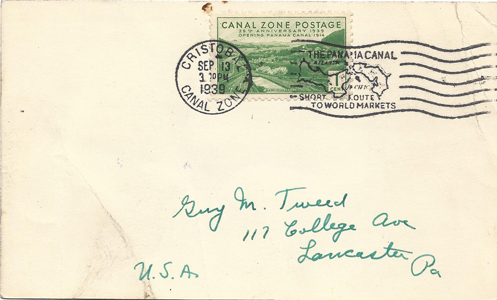 CANAL ZONE POSTAGE
25TH ANNIVERSARY 1939
OPENING PANAMA CANAL 1914
CRISTOBAL
SEP 13
3 PM
1939
CANAL ZONE
THE PANAMA CANAL
ATLANTIC
PACIFIC
SHORT ROUTE
TO WORLD MARKETS
Guy M. Tweed
117 College Ave
Lancaster
Pa
U.S.A.